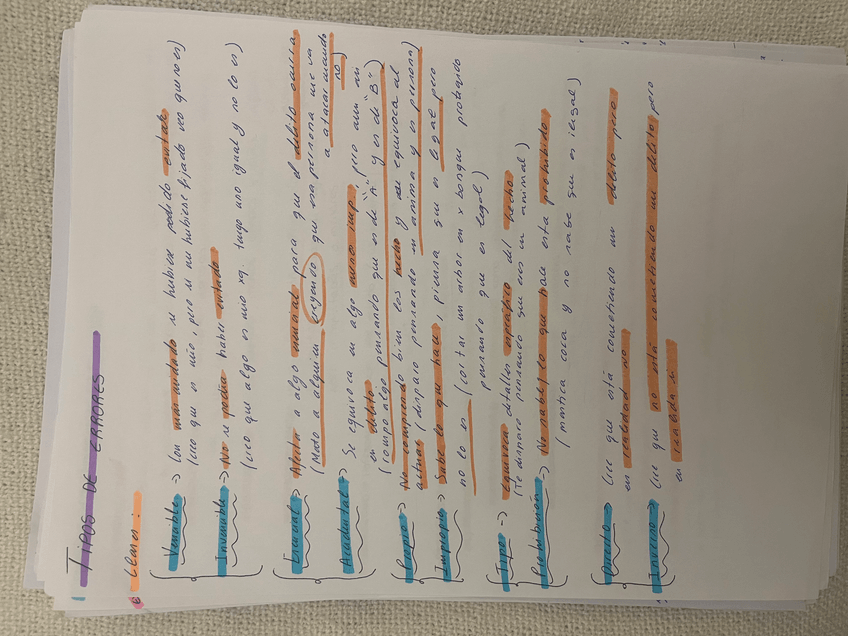 TIPOS DE ERRORES
Clases:
Vencible -> Con más cuidado se hubiese podido evitar
(creo que es mío, pero si me hubiese fijado veo que no es)
Invencible -> No se podía haber evitado
(creo que algo es mío xq. tengo uno igual y no lo es)
Esencial -> Afecta a algo esencial para que el delito ocurra
(Mato a alguien creyendo que esa persona me va
a atacar cuando
no)
Accidental -> Se equivoca en algo menos imp., pero aun así
es delito
(rompo algo pensando que es de "A" y es de "B")
Propio -> No comprendo bien los hecho y se equivoca al
actuar (disparo pensando en animal y es persona)
Impropio -> Sabe lo que hace, piensa que es legal pero
no lo es (cortar un árbol en x bosque protegido
pensando que es legal)
Tipo -> Equivoca detalles específico del hecho
(Te disparo pensando que eres un animal)
Prohibición -> No sabe lo que hace está prohibido
( coca y no sabe que es ilegal)
Directo -> Cree que está cometiendo un delito pero
en realidad no
Inverso -> Cree que no está cometiendo un delito, pero
en realidad sí